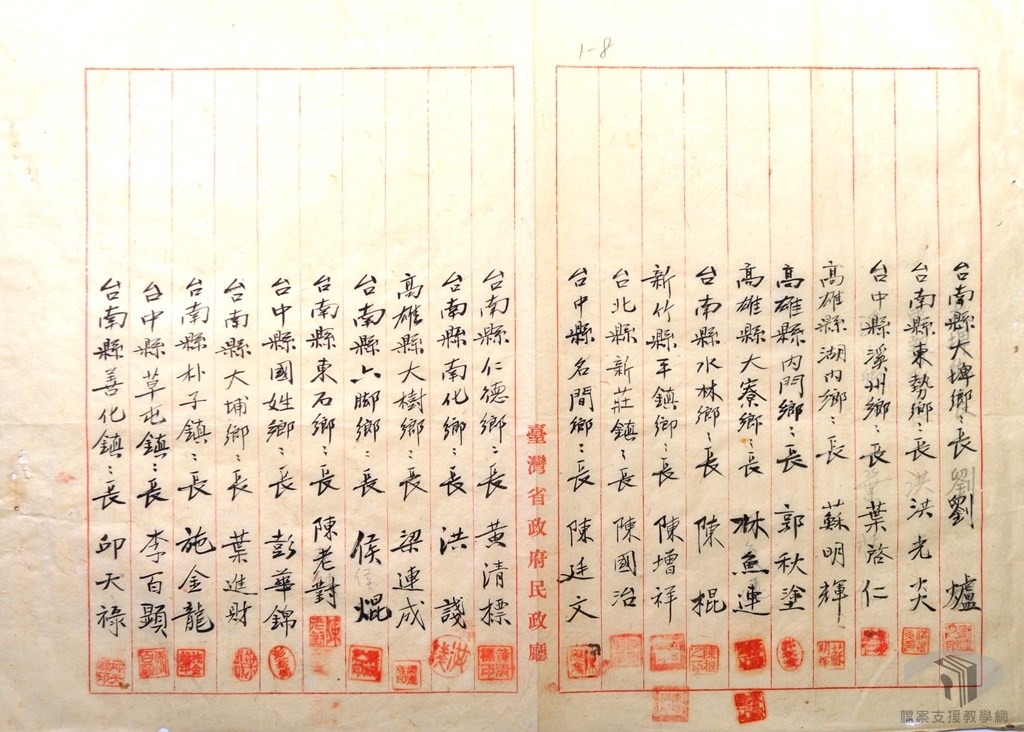 1-8
台南縣大埤鄉〻長 劉爐
台南縣東勢鄉〻長 洪光炎
台中縣溪州鄉〻長 葉啓仁
高雄縣湖內鄉〻長 蘇明輝
高雄縣內門鄉〻長 郭秋塗
高雄縣大寮鄉〻長 林魚連
台南縣水林鄉〻長 陳棍
新竹縣平鎮鄉〻長 陳增祥
台北縣新莊鎮〻長 陳國治
台中縣名間鄉〻長 陳廷文
臺灣省政府民政廳
台南縣仁德鄉〻長 黃清標
台南縣南化鄉〻長 洪
高雄縣大樹鄉〻長 梁連成
台南縣六脚鄉〻長 侯焜
台南縣東石鄉〻長 陳老對
台中縣國姓鄉〻長 彭華錦
台南縣大埔鄉〻長 葉進財
台南縣朴子鎮〻長 施金龍
台中縣草屯鎮〻長 李百顯
台南縣善化鎮〻長 邱天祿
檔案支援教學網